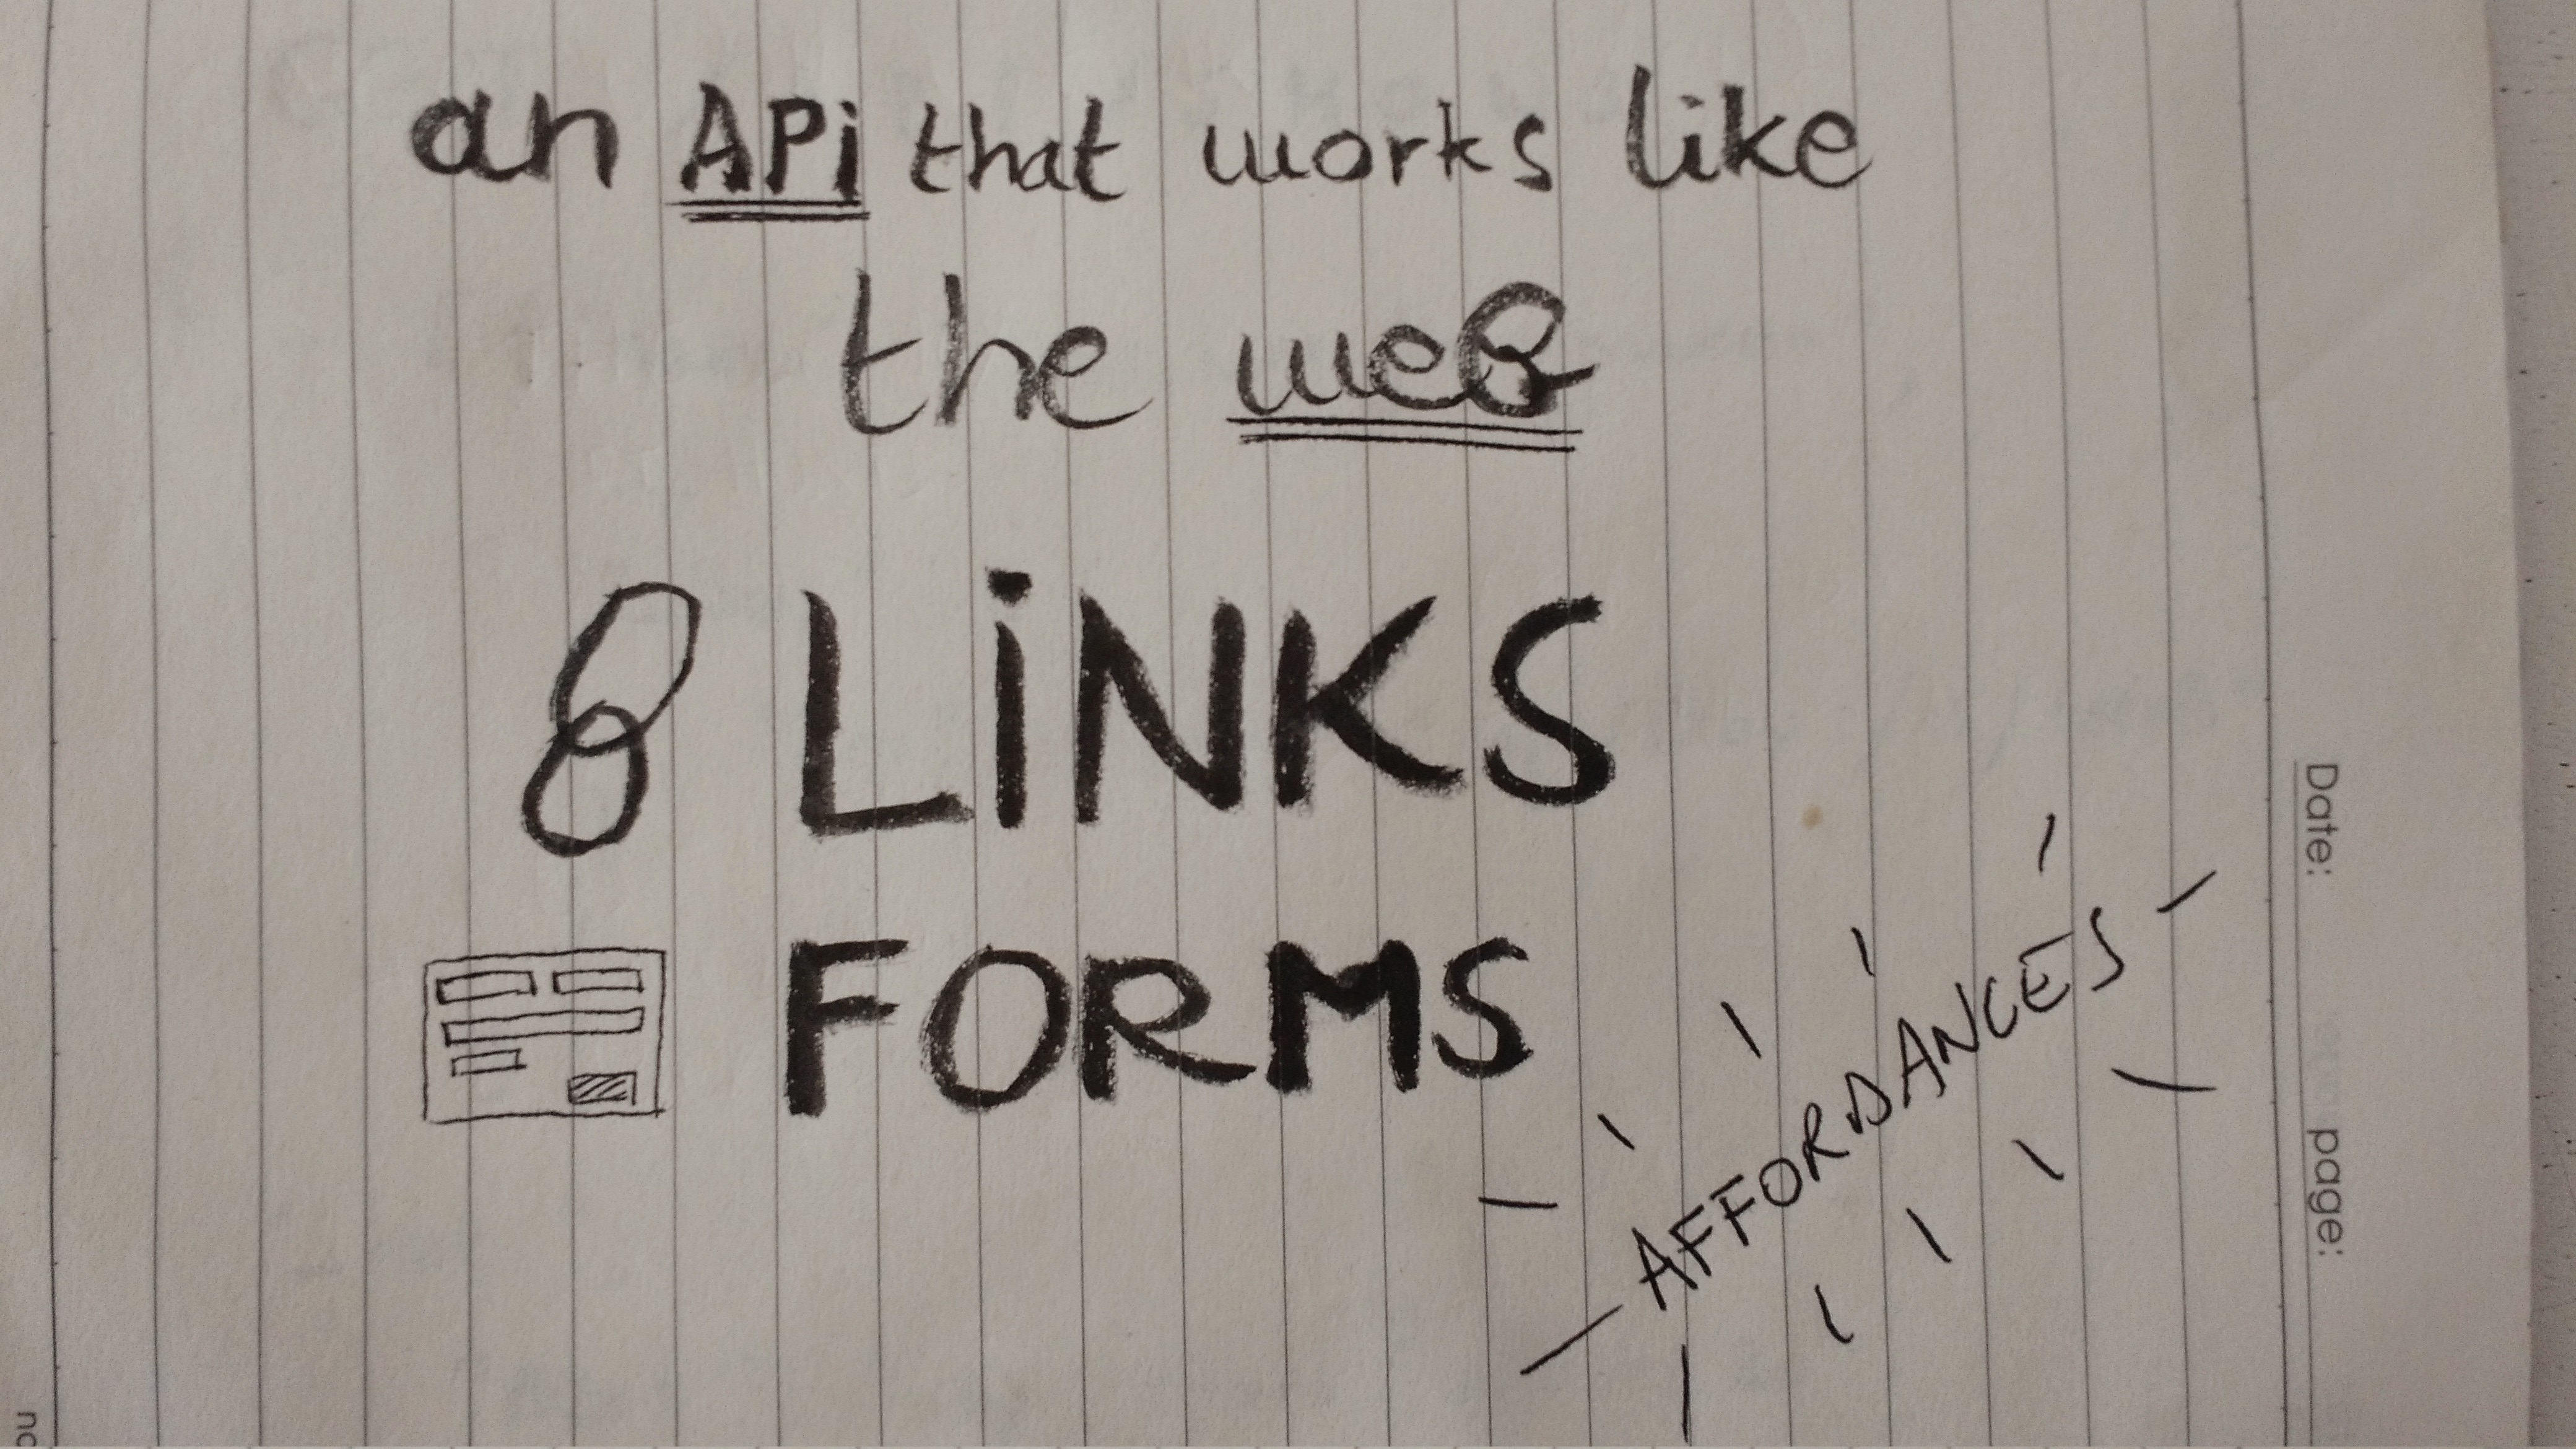 an APi that works like
the weB
LiNKS
FORMS
AFFORDANCES
Date:
page: